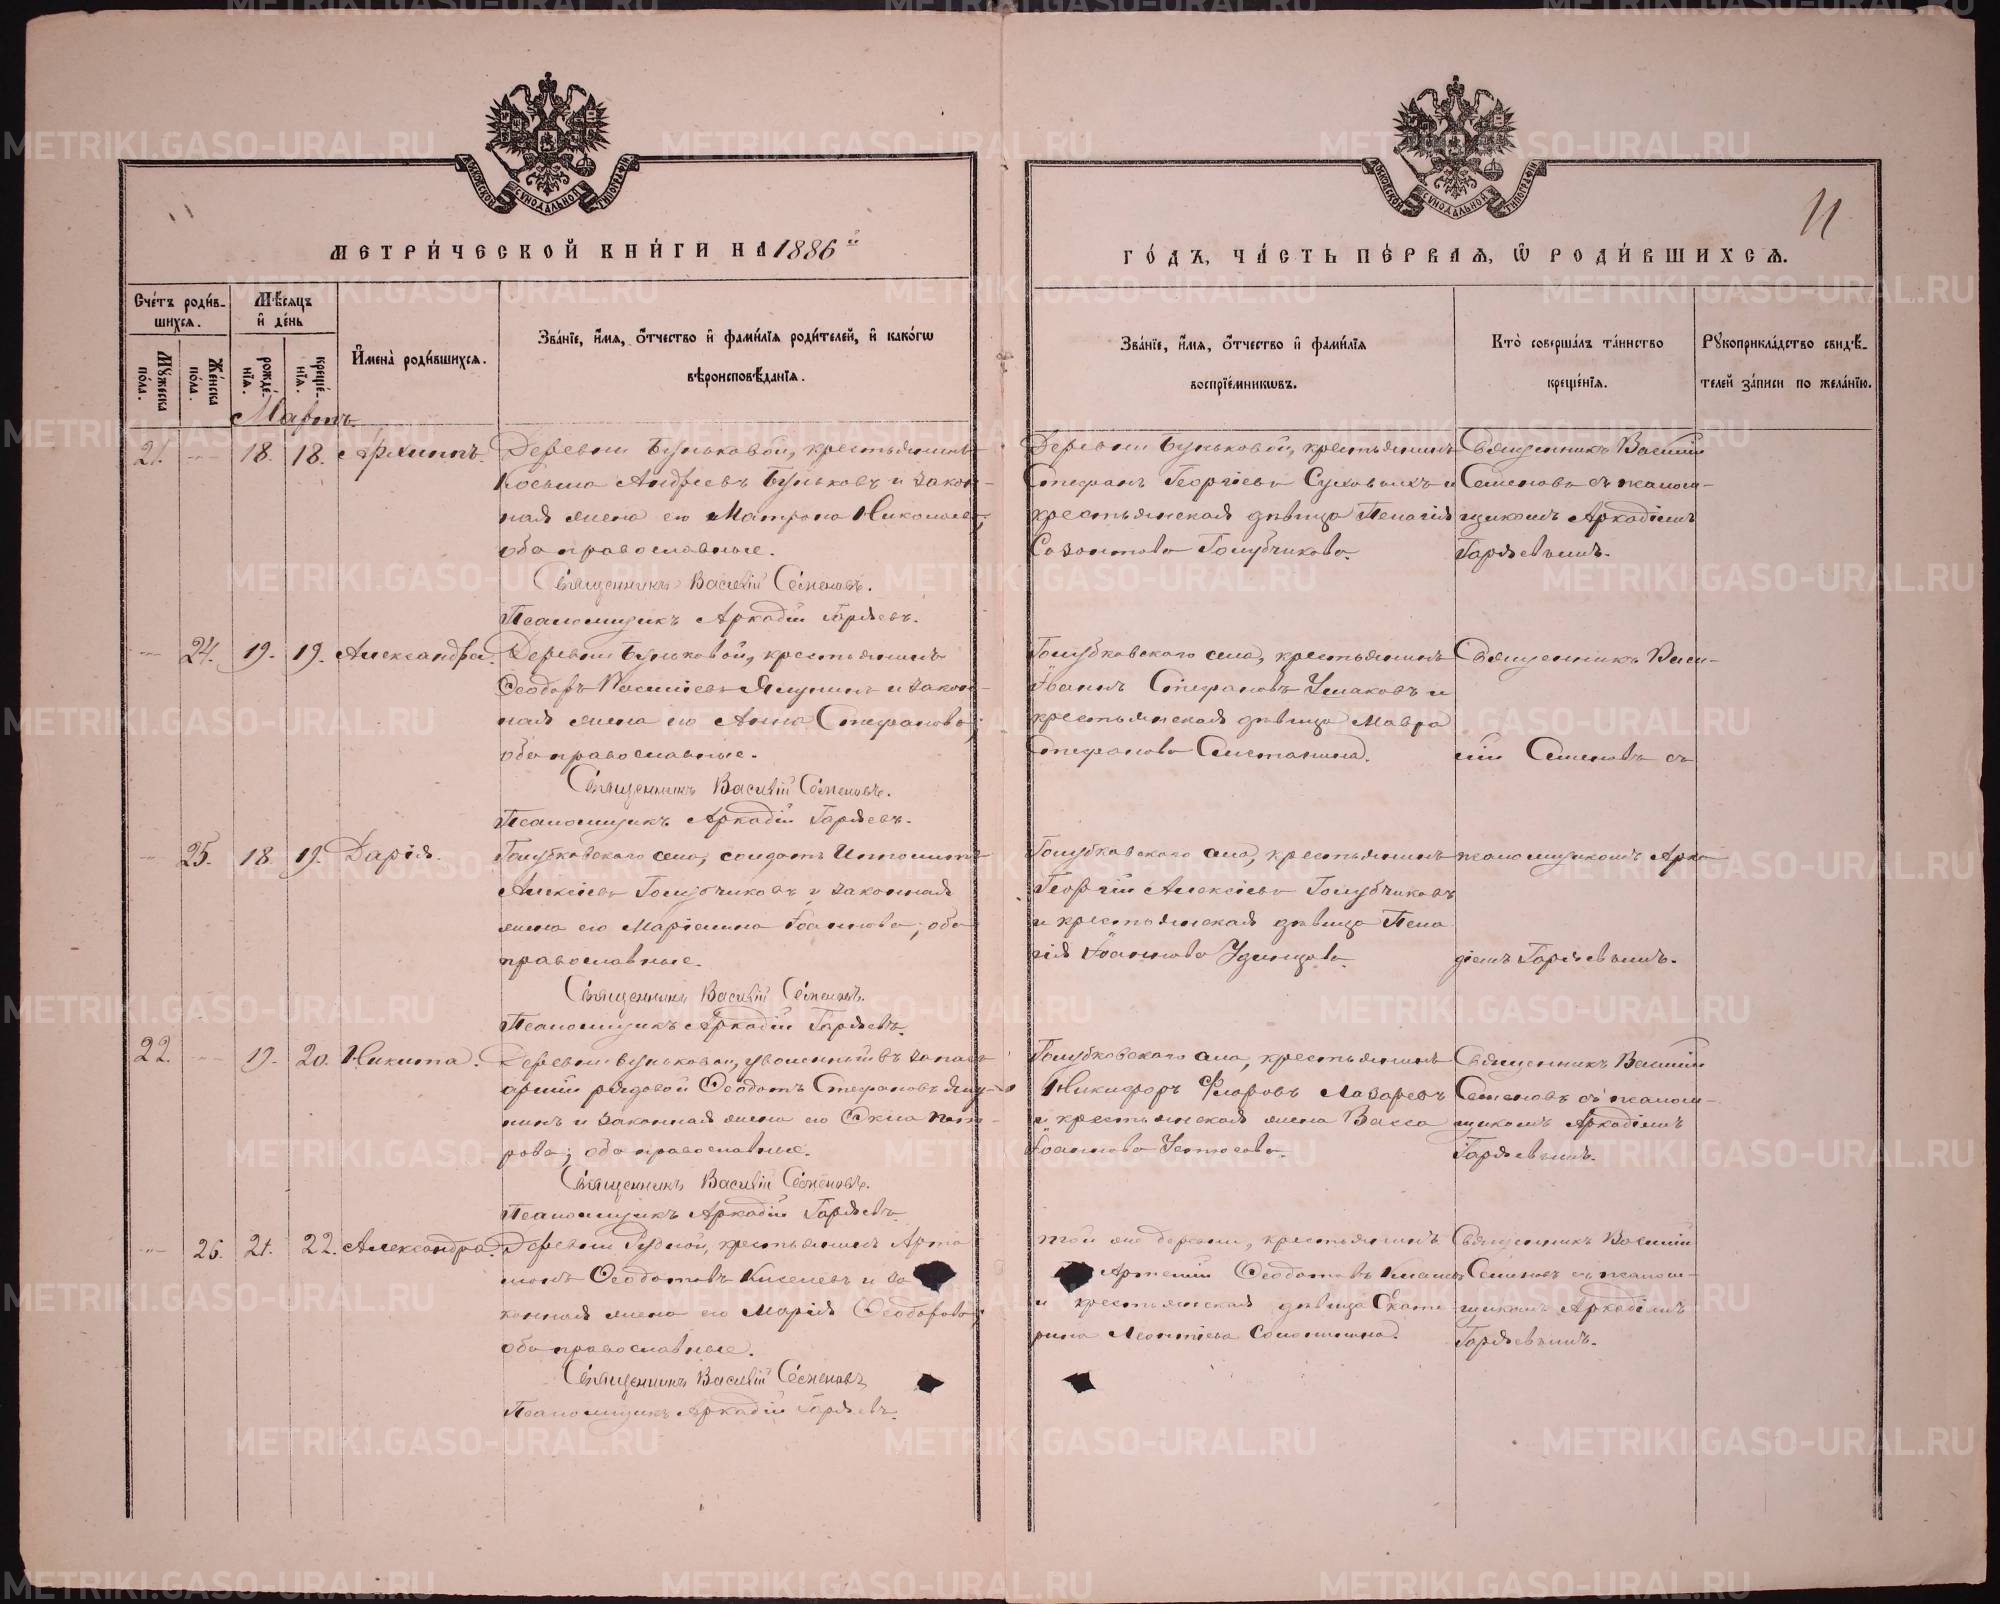 МЕТРИ́ЧЕСКОЙ КНИ́ГИ НА 1886й
ГО́ДЪ, ЧА́СТЬ ПЕ́РВАѦ, Ѽ РОДИ́ВШИХСѦ.
11
МОСКОВСКОЙ СѴНОДАЛЬНОЙ ТИПОГРАФІИ
МОСКОВСКОЙ СѴНОДАЛЬНОЙ ТИПОГРАФІИ
Сче́тъ роди́в-
шихсѧ.
Мꙋжеска по́ла.
Же́нска по́ла.
Мѣ́сѧцъ
и҆ де́нь
рожде́-
нїѧ.
креще́-
нїѧ.
И҆мена̀ роди́вшихсѧ.
Зва́нїе, и҆́мѧ, ѻ҆́тчество и҆ фами́лїѧ роди́телей, и҆ како́гѡ
вѣроисповѣ́данїѧ.
Зва́нїе, и҆́мѧ, ѻ҆́тчество и҆ фами́лїѧ
воспрїе́мникѡвъ.
Кто̀ соверша́лъ та́инство
креще́нїѧ.
Рꙋкоприкла́дство свидѣ́-
телей за́писи по жела́нїю.
Мартъ.
21. 18. 18. Архиппъ.
Деревни Буньковой, крестьянинъ
Косьма Андреевъ Буньковъ и закон-
ная жена его Матрона Николаева,
оба православные.
Священникъ Василій Семеновъ.
Псаломщикъ Аркадій Гаряевъ.
Деревни Буньковой, крестьянинъ
Стефанъ Георгіевъ и
крестьянская дѣвица Пелагія
Созонтова Голубчикова.
Священникъ Василій
Семеновъ съ псалом-
щикомъ Аркадіемъ
Гаряевымъ.
24. 19. 19. Александра.
Деревни Буньковой, крестьянинъ
Ѳеодоръ Васильевъ Ялунинъ и закон-
ная жена его Анна Стефанова,
оба православные.
Священникъ Василій Семеновъ.
Псаломщикъ Аркадій Гаряевъ.
Голубковскаго села, крестьянинъ
Іоаннъ Стефановъ Ушаковъ и
крестьянская дѣвица Мавра
Стефанова Сметанина.
Священникъ Васи-
лій Семеновъ съ
25. 18. 19. Дарія.
Голубковскаго села, солдатъ Ипполитъ
Алексіевъ Голубчиковъ и законная
жена его Маріамна Іоаннова, оба
православные.
Священникъ Василій Семеновъ.
Псаломщикъ Аркадій Гаряевъ.
Голубковскаго села, крестьянинъ
Георгій Алексіевъ Голубчиковъ
и крестьянская дѣвица Пела
гія Іоаннова Удинцова.
псаломщикомъ Арка
діемъ Гаряевымъ.
22. 19. 20. Никита.
Деревни Буньковой, уволенный въ запасъ
арміи рядовой Ѳеодотъ Стефановъ Ялу-
нинъ и законная жена его Пет-
рова, оба православные.
Священникъ Василій Семеновъ.
Псаломщикъ Аркадій Гаряевъ.
Голубковскаго села, крестьянинъ
Никифоръ Флоровъ Лазаревъ
и крестьянская жена Васса
Іоаннова Устюгова.
Священникъ Василій
Семеновъ съ псалом-
щикомъ Аркадіемъ
Гаряевымъ.
26. 21. 22. Александра.
Деревни Рудной, крестьянинъ Арта
монъ Ѳеодотовъ Киселевъ и за
конная жена его Марія Ѳеодорова,
оба православные.
Священникъ Василій Семеновъ.
Псаломщикъ Аркадій Гаряевъ.
той же деревни, крестьянинъ
Артемій Ѳеодотовъ
и крестьянская дѣвица Екате
рина Леонтіева
Священникъ Василій
Семеновъ съ псалом-
щикомъ Аркадіемъ
Гаряевымъ.
METRIKI.GASO-URAL.RU